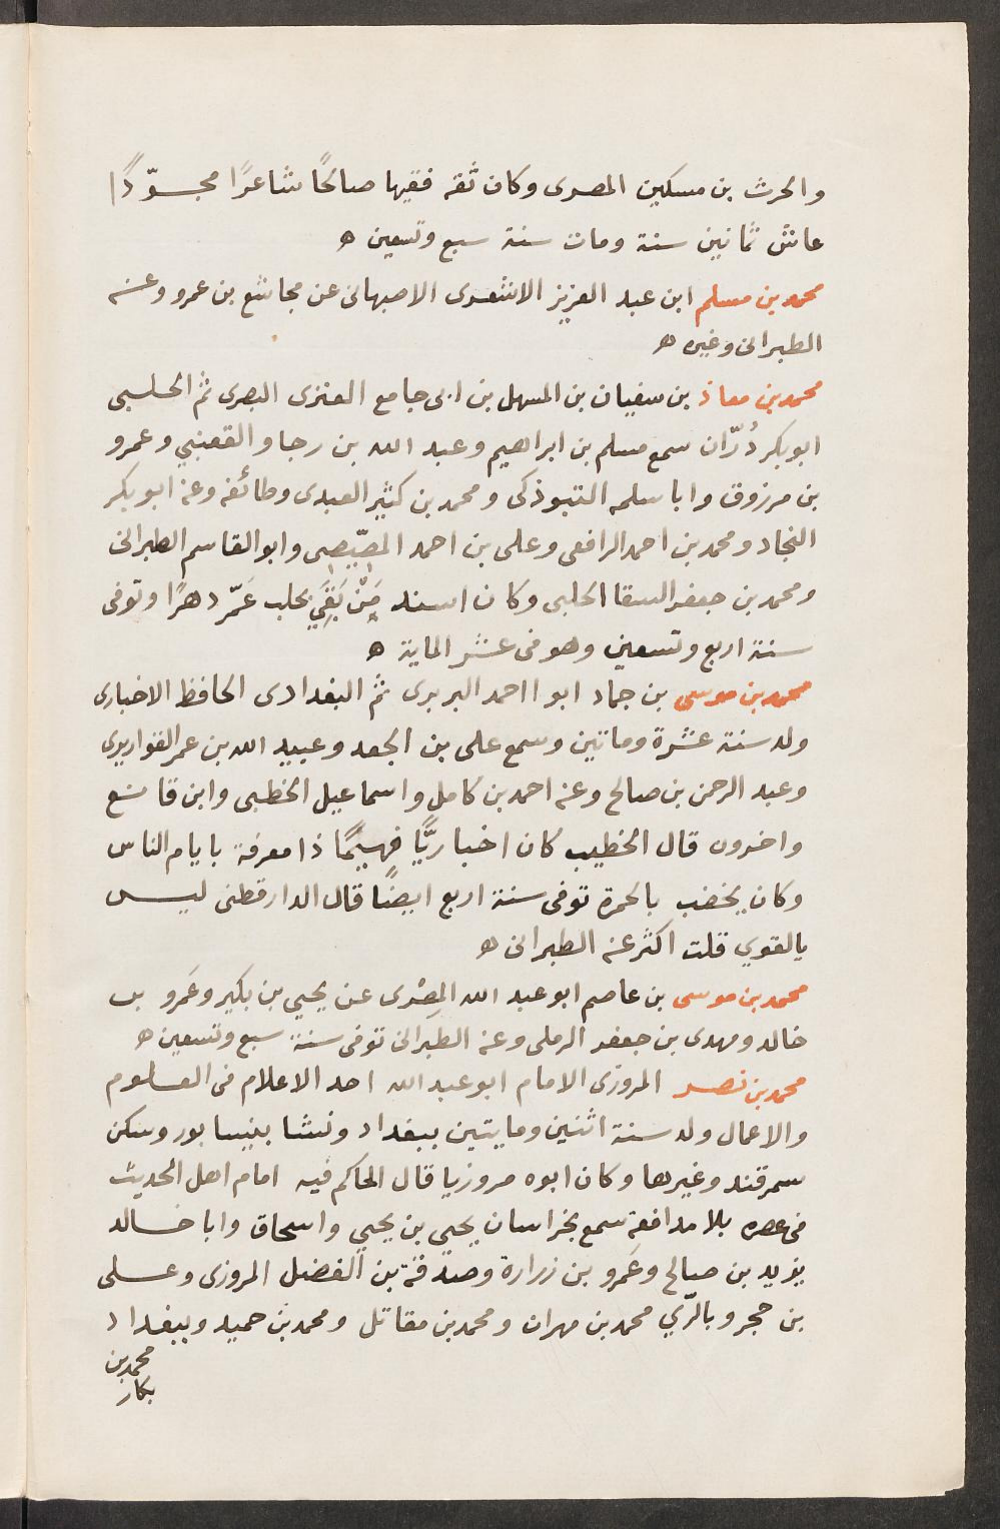 والحرث بن مسكين المصرى وكان ثقه فقيها صالحًا شاعرًا مجوّدًا
عاش ثمانين سنة ومات سنة سبع وتسعين ه
محمد بن مسلم ابن عبد العزيز الاشعرى الاصبهانى عن مجاشع بن عمرو وعنه
الطبرانى وغيره ه
محمد بن معاذ بن سفيان بن المسهل بن ابى جامع العنزى البصرى ثم الحلبى
ابو بكر دُرّان سمع مسلم بن ابراهيم وعبد الله بن رجا والقعنبي وعمرو
بن مرزوق وابا سلمه التبوذكى ومحمد بن كثير العبدى وطائفه وعنه ابو بكر
النجاد ومحمد بن احمد الرافعى وعلى بن احمد المصّيصى وابو القاسم الطبرانى
ومحمد بن جعفر السقا الحلبى وكان اسند مَنْ بَقِيَ بحلب عَمّر دهرًا وتوفى
سنة اربع وتسعين وهو فى عشر الماية ه
محمد بن موسى بن حماد ابو ااحمد البربرى ثم البغدادى الحافظ الاخبارى
ولد سنة عشرة وماتين وسمع على بن الجعد وعبيد الله بن عمر القواريرى
وعبد الرحمن بن صالح وعنه احمد بن كامل واسماعيل الخطبى وابن قانع
واخرون قال الخطيب كان اخباريًّا فهيمًا ذا معرفة بايام الناس
وكان يخضب بالحمرة توفى سنة اربع ايضًا قال الدارقطنى ليس
بالقوي قلت اكثر عنه الطبرانى ه
محمد بن موسى بن عاصم ابو عبد الله المِصْرى عن يحيي بن بكير وعَمرو بن
خالد ومهدى بن جعفر الرملى وعنه الطبرانى توفى سنة سبع وتسعين ه
محمد بن نصر المروزى الامام ابو عبد الله احد الاعلام فى العلوم
والاعمال ولد سنة اثنين ومايتين ببغداد ونشا بنيسابور وسكن
سمرقند وغيرها وكان ابوه مروزيا قال الحاكم فيه امام اهل الحديث
فى عصره بلا مدافعة سمع بخراسان يحيى بن يحيي واسحاق وابا خالد
يزيد بن صالح وعَمرو بن زرارة وصدقة بن الفضل المروزى وعلى
بن حجر وبالرّي محمد بن مهران ومحمد بن مقاتل ومحمد بن حميد وببغداد
محمد بن
بكار